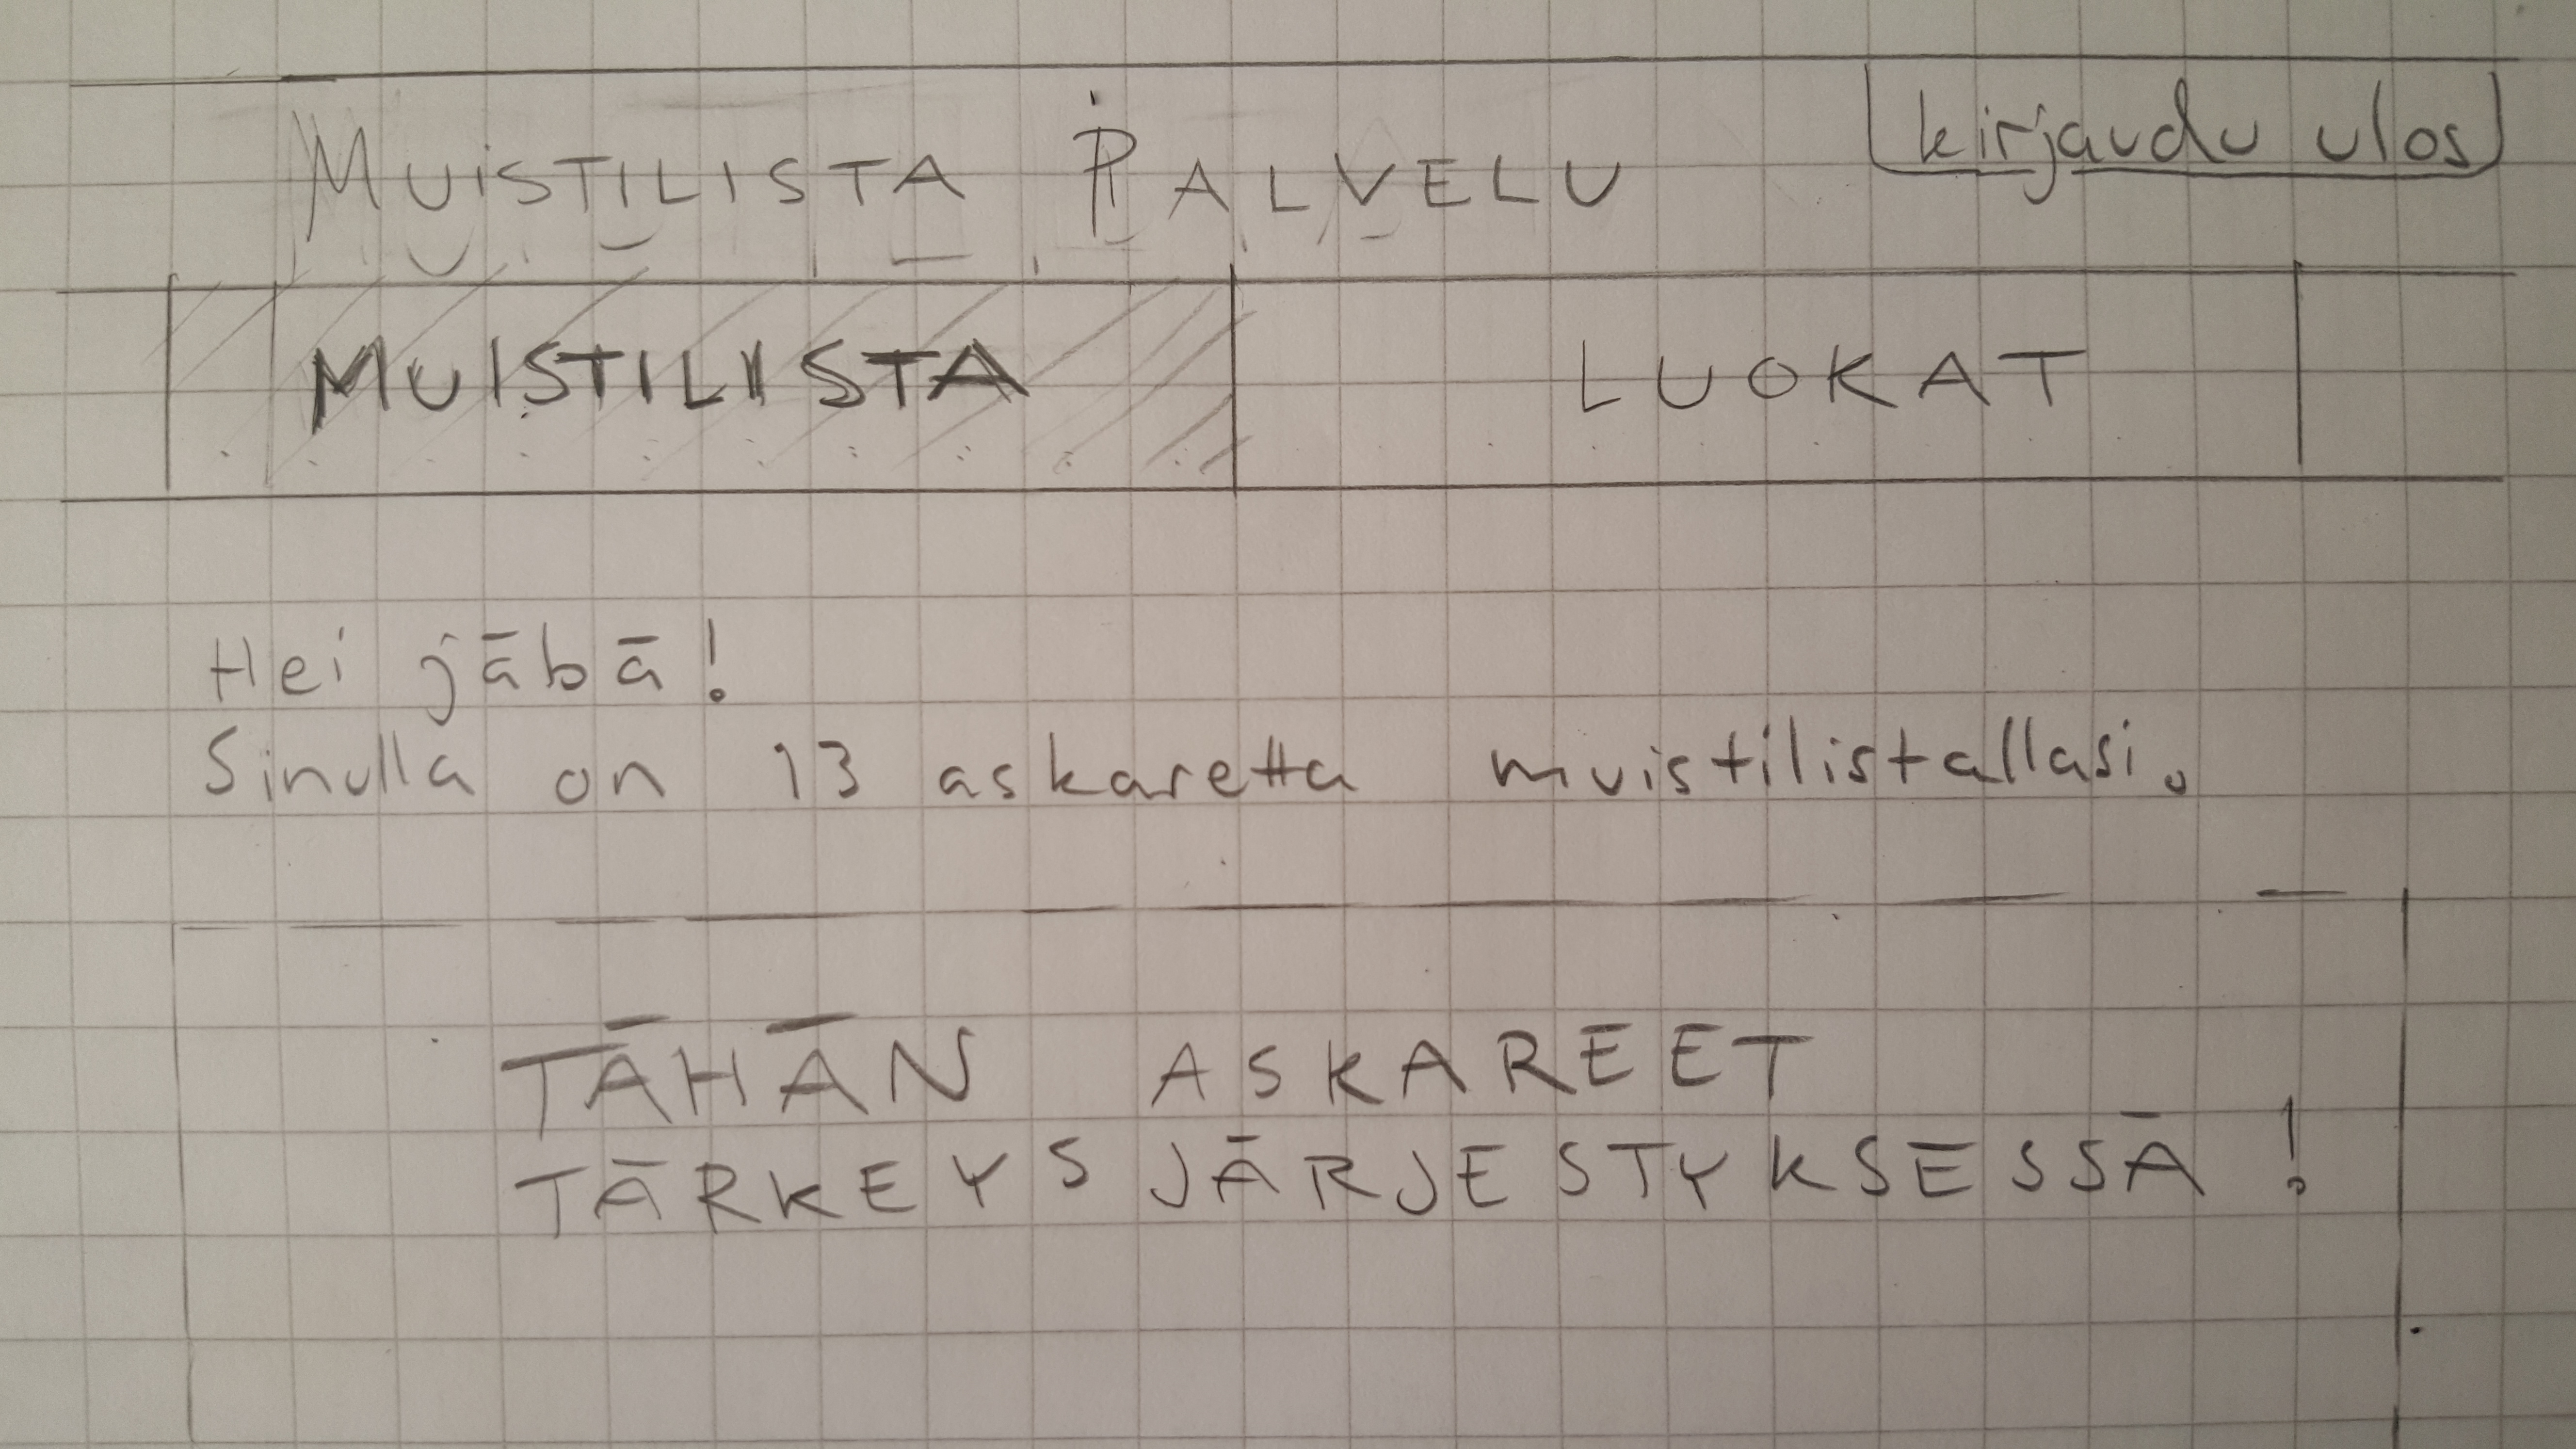 MUISTILISTA PALVELU
kirjaudu ulos
MUISTILISTA
LUOKAT
Hei jäbä!
Sinulla on 13 askaretta muistilistallasi.
TÄHÄN ASKAREET
TÄRKEYS JÄRJESTYKSESSÄ!